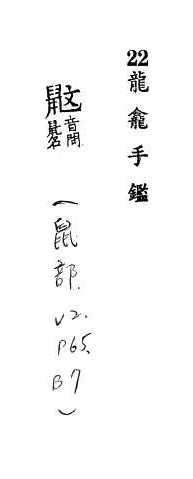 22龍龕手鑑
鼤音問鼠名(鼠部.V2.P65.B7)